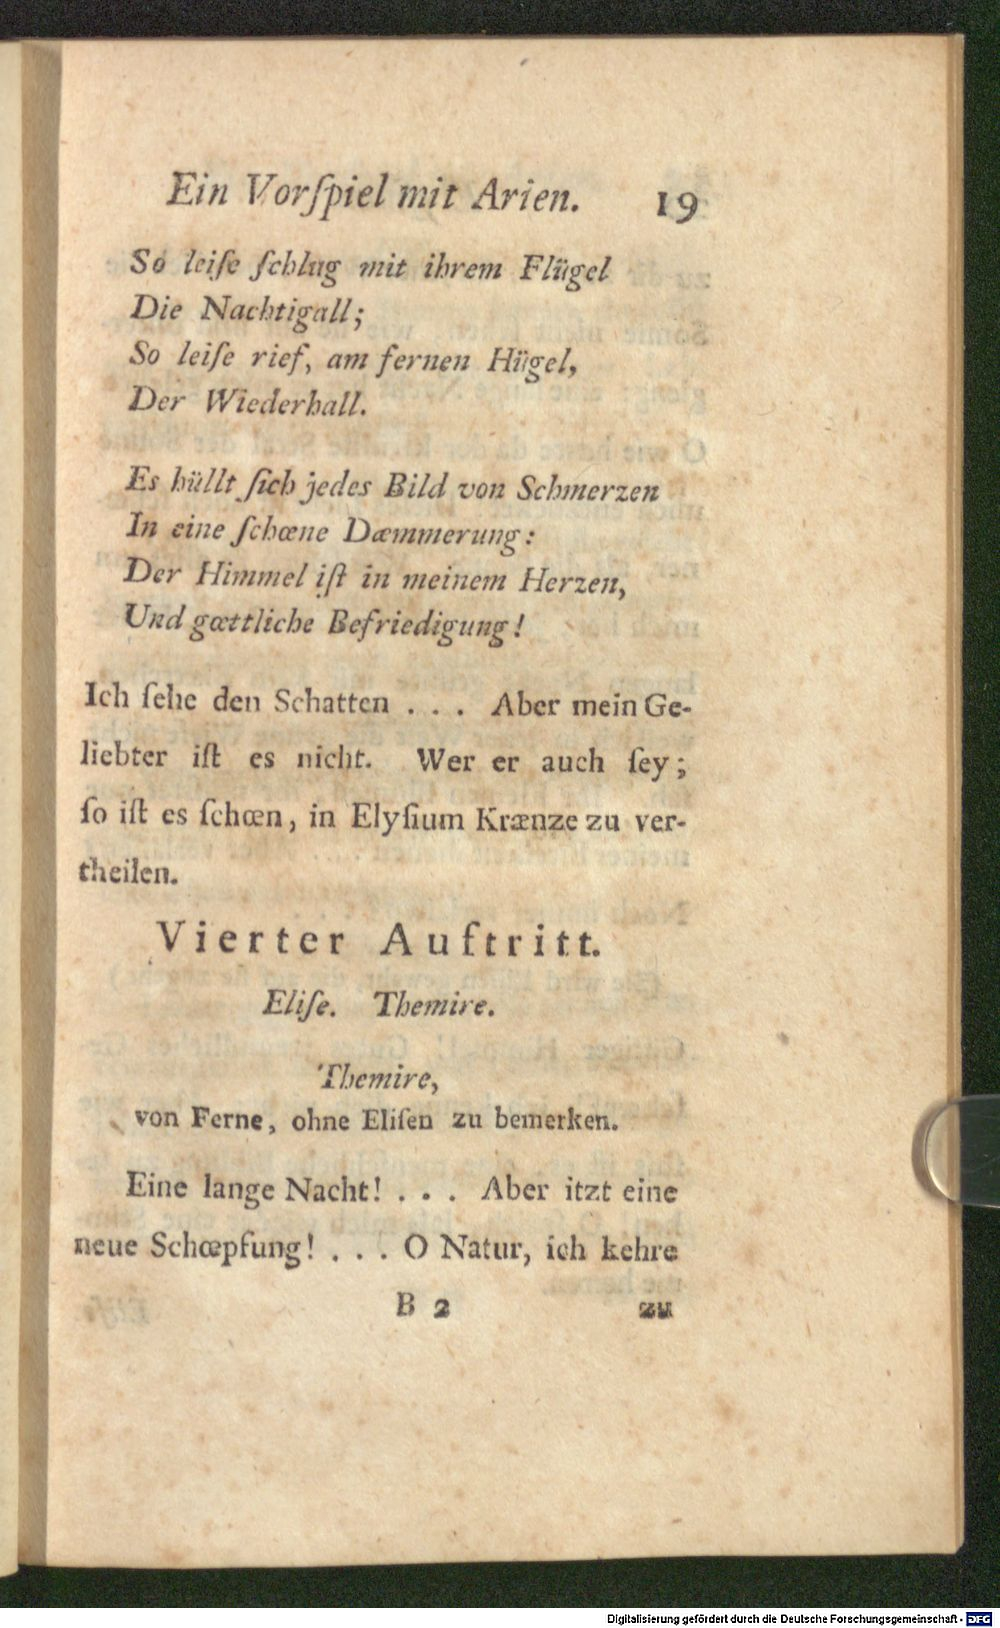 Ein Vorſpiel mit Arien. 19
So leiſe ſchlug mit ihrem Flügel
Die Nachtigall;
So leiſe rief, am fernen Hügel,
Der Wiederhall.
Es hüllt ſich jedes Bild von Schmerzen
In eine ſchœne Dæmmerung:
Der Himmel iſt in meinem Herzen,
Und gœttliche Befriedigung!
Ich ſehe den Schatten . . . Aber mein Ge-
liebter iſt es nicht. Wer er auch ſey;
ſo iſt es ſchœn, in Elyſium Krænze zu ver-
theilen.
Vierter Auftritt.
Eliſe. Themire.
Themire,
von Ferne, ohne Eliſen zu bemerken.
Eine lange Nacht! . . . Aber itzt eine
neue Schœpfung! . . . O Natur, ich kehre
B 2 zu
Digitalisierung gefördert durch die Deutsche Forschungsgemeinschaft - DFG